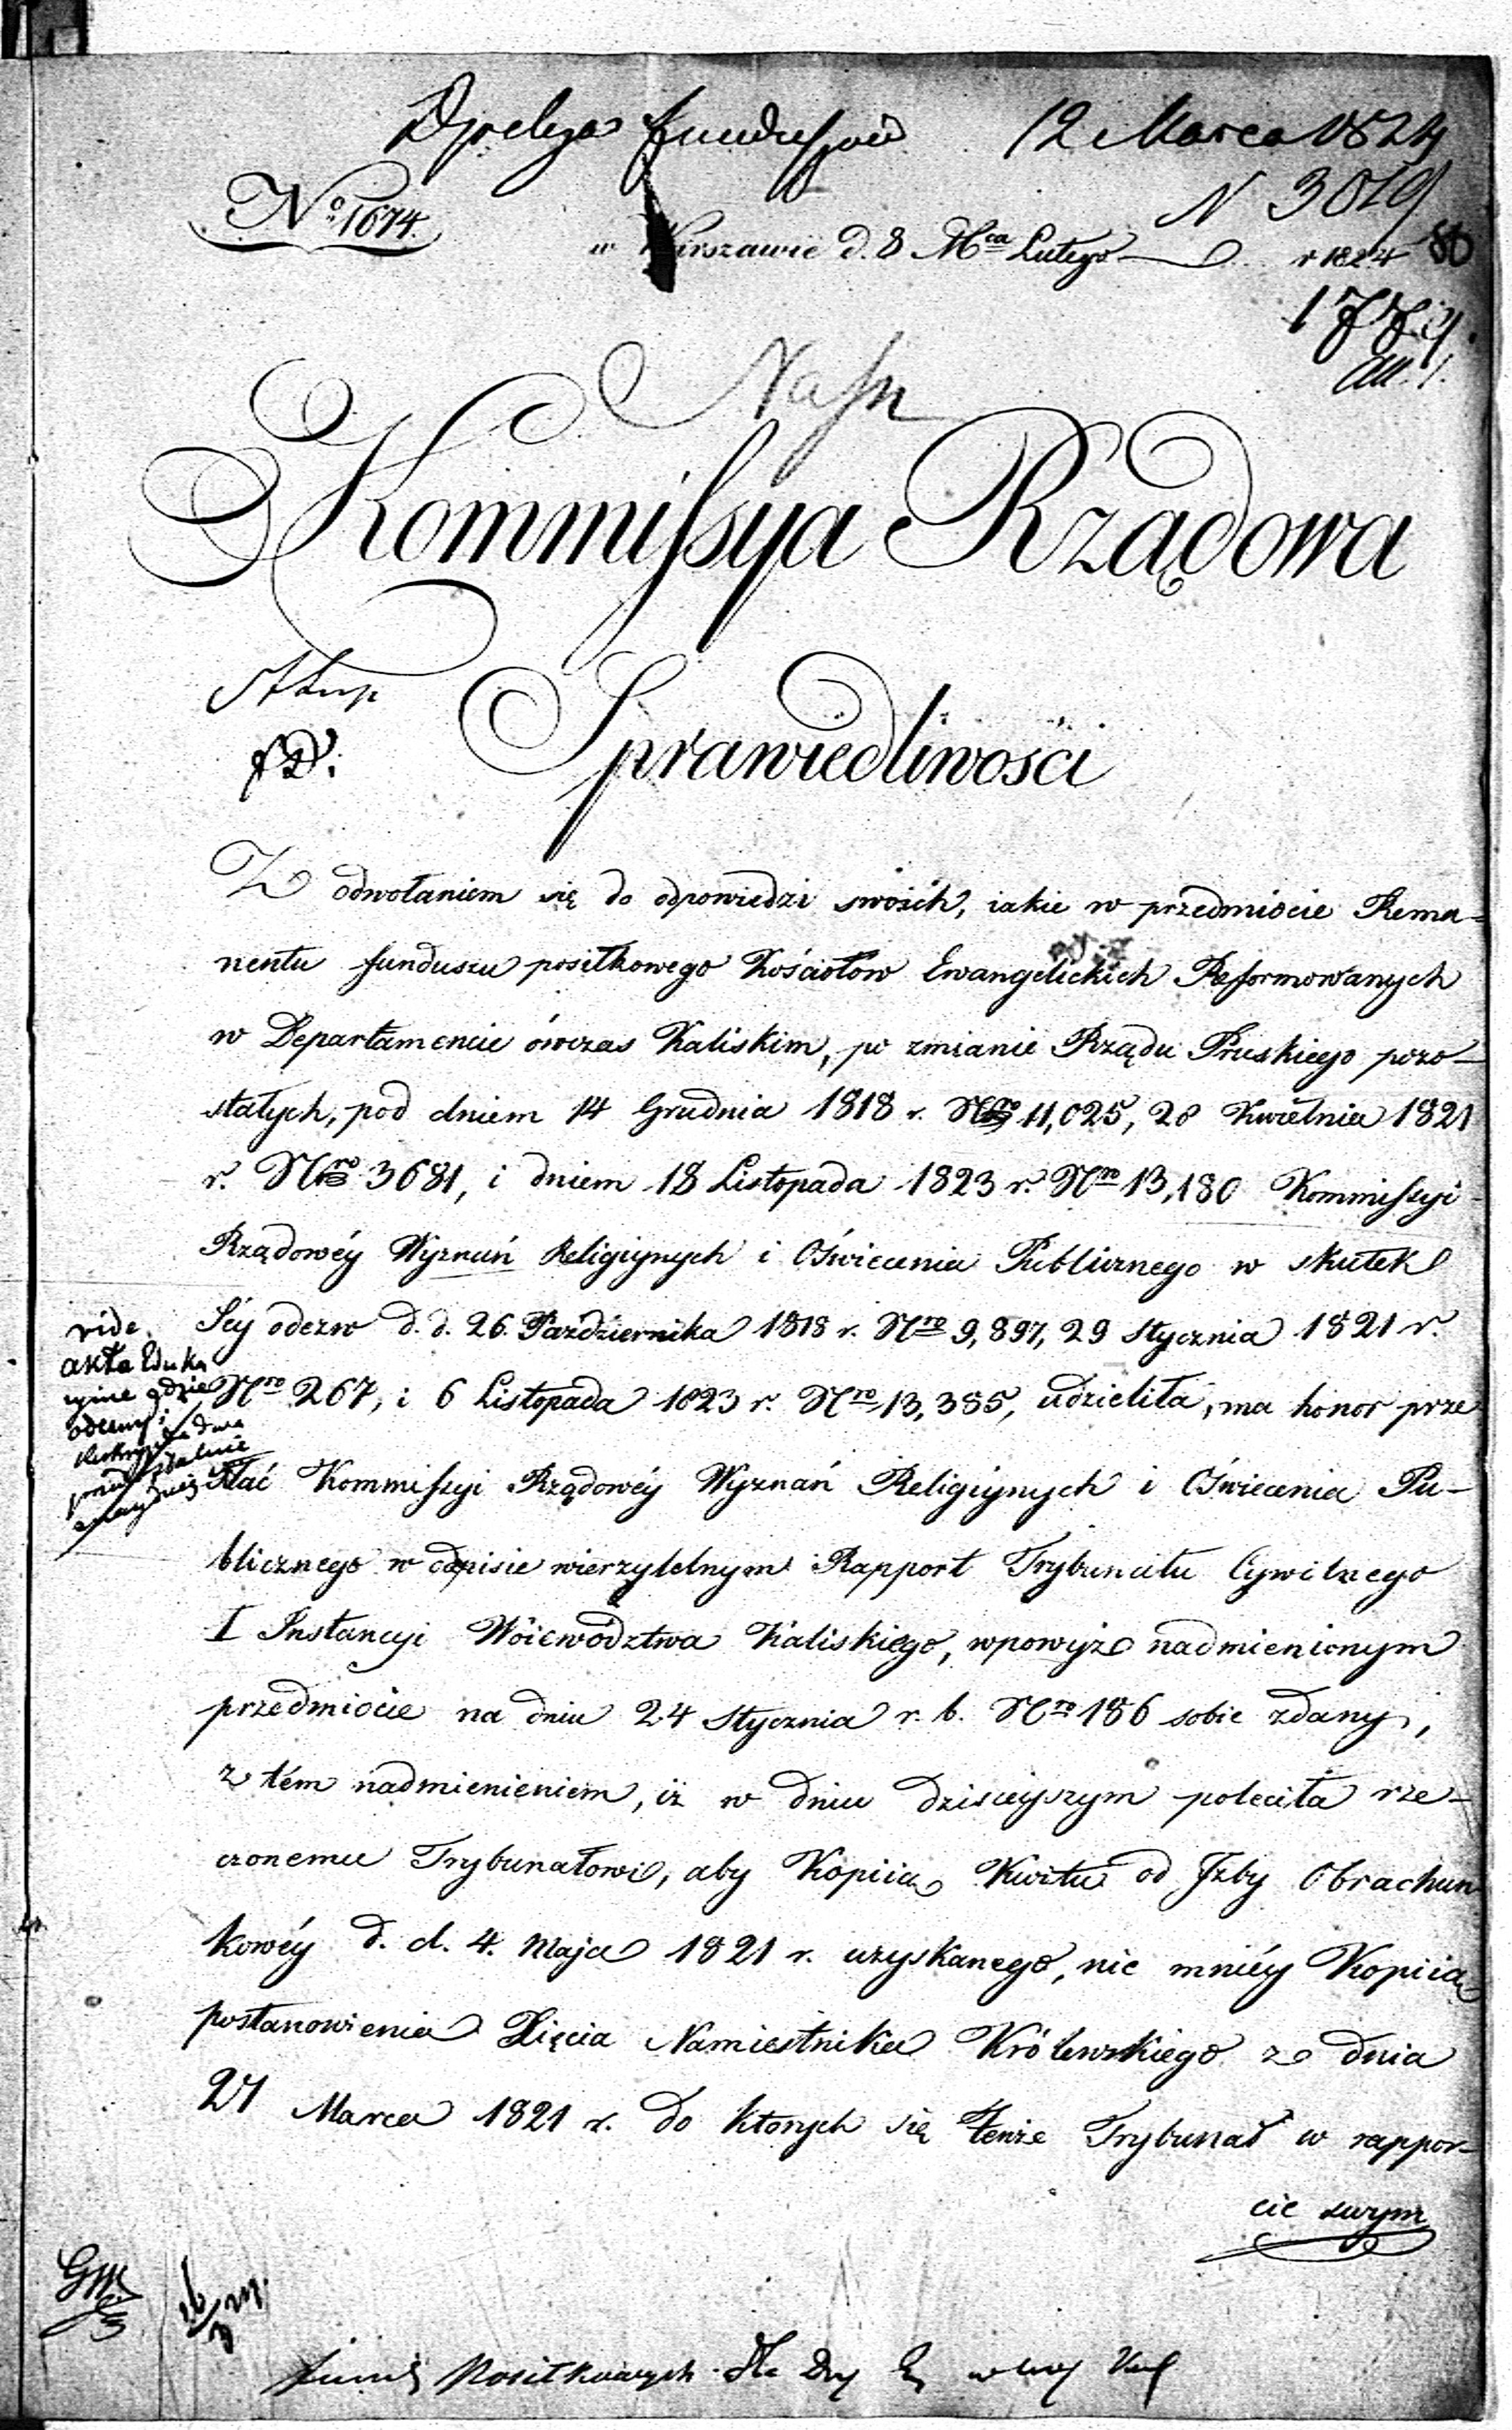 funduszow 12 Marca 1824
No 1674.
N 3019
w Warszawie d. 8 Mca Lutego r 1824 80
Kommissya Rządowa
Sprawiedliwości
Z odwołaniem się do odpowiedzi swoich, iakie w przedmiocie Rema-
nentu funduszu posiłkowego Kościołów Ewangelickich Reformowanych
w Departamencie ówczas Kaliskim, po zmianie Rządu Pruskiego pozo-
stałych, pod dniem 14 Grudnia 1818 r. Nro 11,025, 28 Kwietnia 1821
r. Nro 3681, i dniem 18 Listopada 1823 r. Nro 13,180 Kommissyi
Rządowéy Wyznań Religiynych i Oświecenia Publicznego w skutek
Jéy odezw d. d. 26. Października 1818 r. Nro 9,897, 29 Stycznia 1821 r.
vide
akta Eduka
cyine gdzie
Nro 267, i 6 Listopada 1823 r. Nro 13,385, udzieliła, ma honor prze
słać Kommissyi Rządowéy Wyznań Religiynych i Oświecenia Pu-
blicznego w odpisie wierzytelnym Rapport Trybunału Cywilnego
I Instancyi Woiewództwa Kaliskiego, w powyż nadmienionym
przedmiocie na dniu 24 Stycznia r. b. Nro 186 sobie zdany,
z tém nadmienieniem, iż w dniu dzisieyszym poleciła rze-
czonemu Trybunałowi, aby Kopiią Kwitu od Jzby Obrachun
kowéy d. d. 4. Maja 1821 r. uzyskanego, nie mniéy Kopiią
postanowienia Xięcia Namiestnika Królewskiego z dnia
27 Marca 1821 r. do których się tenże Trybunał w rappor-
cie swym